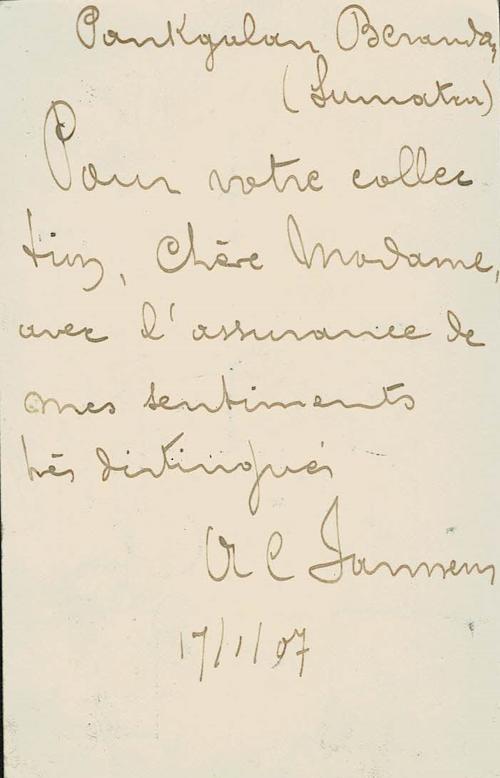 Pankgalan Berandan
(Sumatra)
Pour votre collec
tion, Chère Madame,
avec l'assurance de
mes sentiments
très distingués
A C Janssens
17/1/07